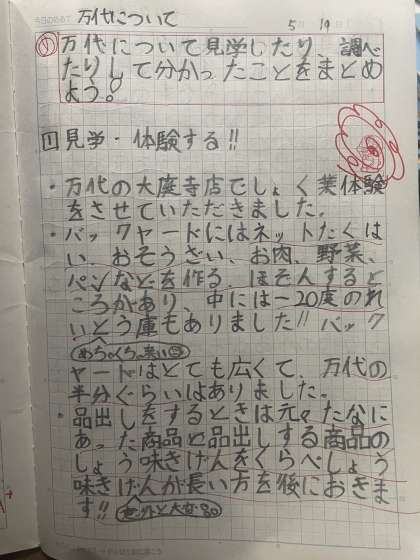 万代について
5 19
め 万代について見学したり、調べ
たりして分かったことをまとめ
よう。
1 見学・体験する!!
・万代の大庭寺店でしょく業体験
をさせていただきました。
・バックヤードにはネットたくは
い、おそうざい、お肉、野菜、
パンなどを作る、ほぞんすると
ころがあり、中には-20度のれ
いとう庫もありました!!バック
めちゃくちゃ寒い
ヤードはとても広くて、万代の
半分ぐらいはありました。
・品出しをするときは元々たなに
あった商品と品出しする商品の
しょう味きげんをくらべしょう
味きげんが長い方を後におきま
す!!意外と大変